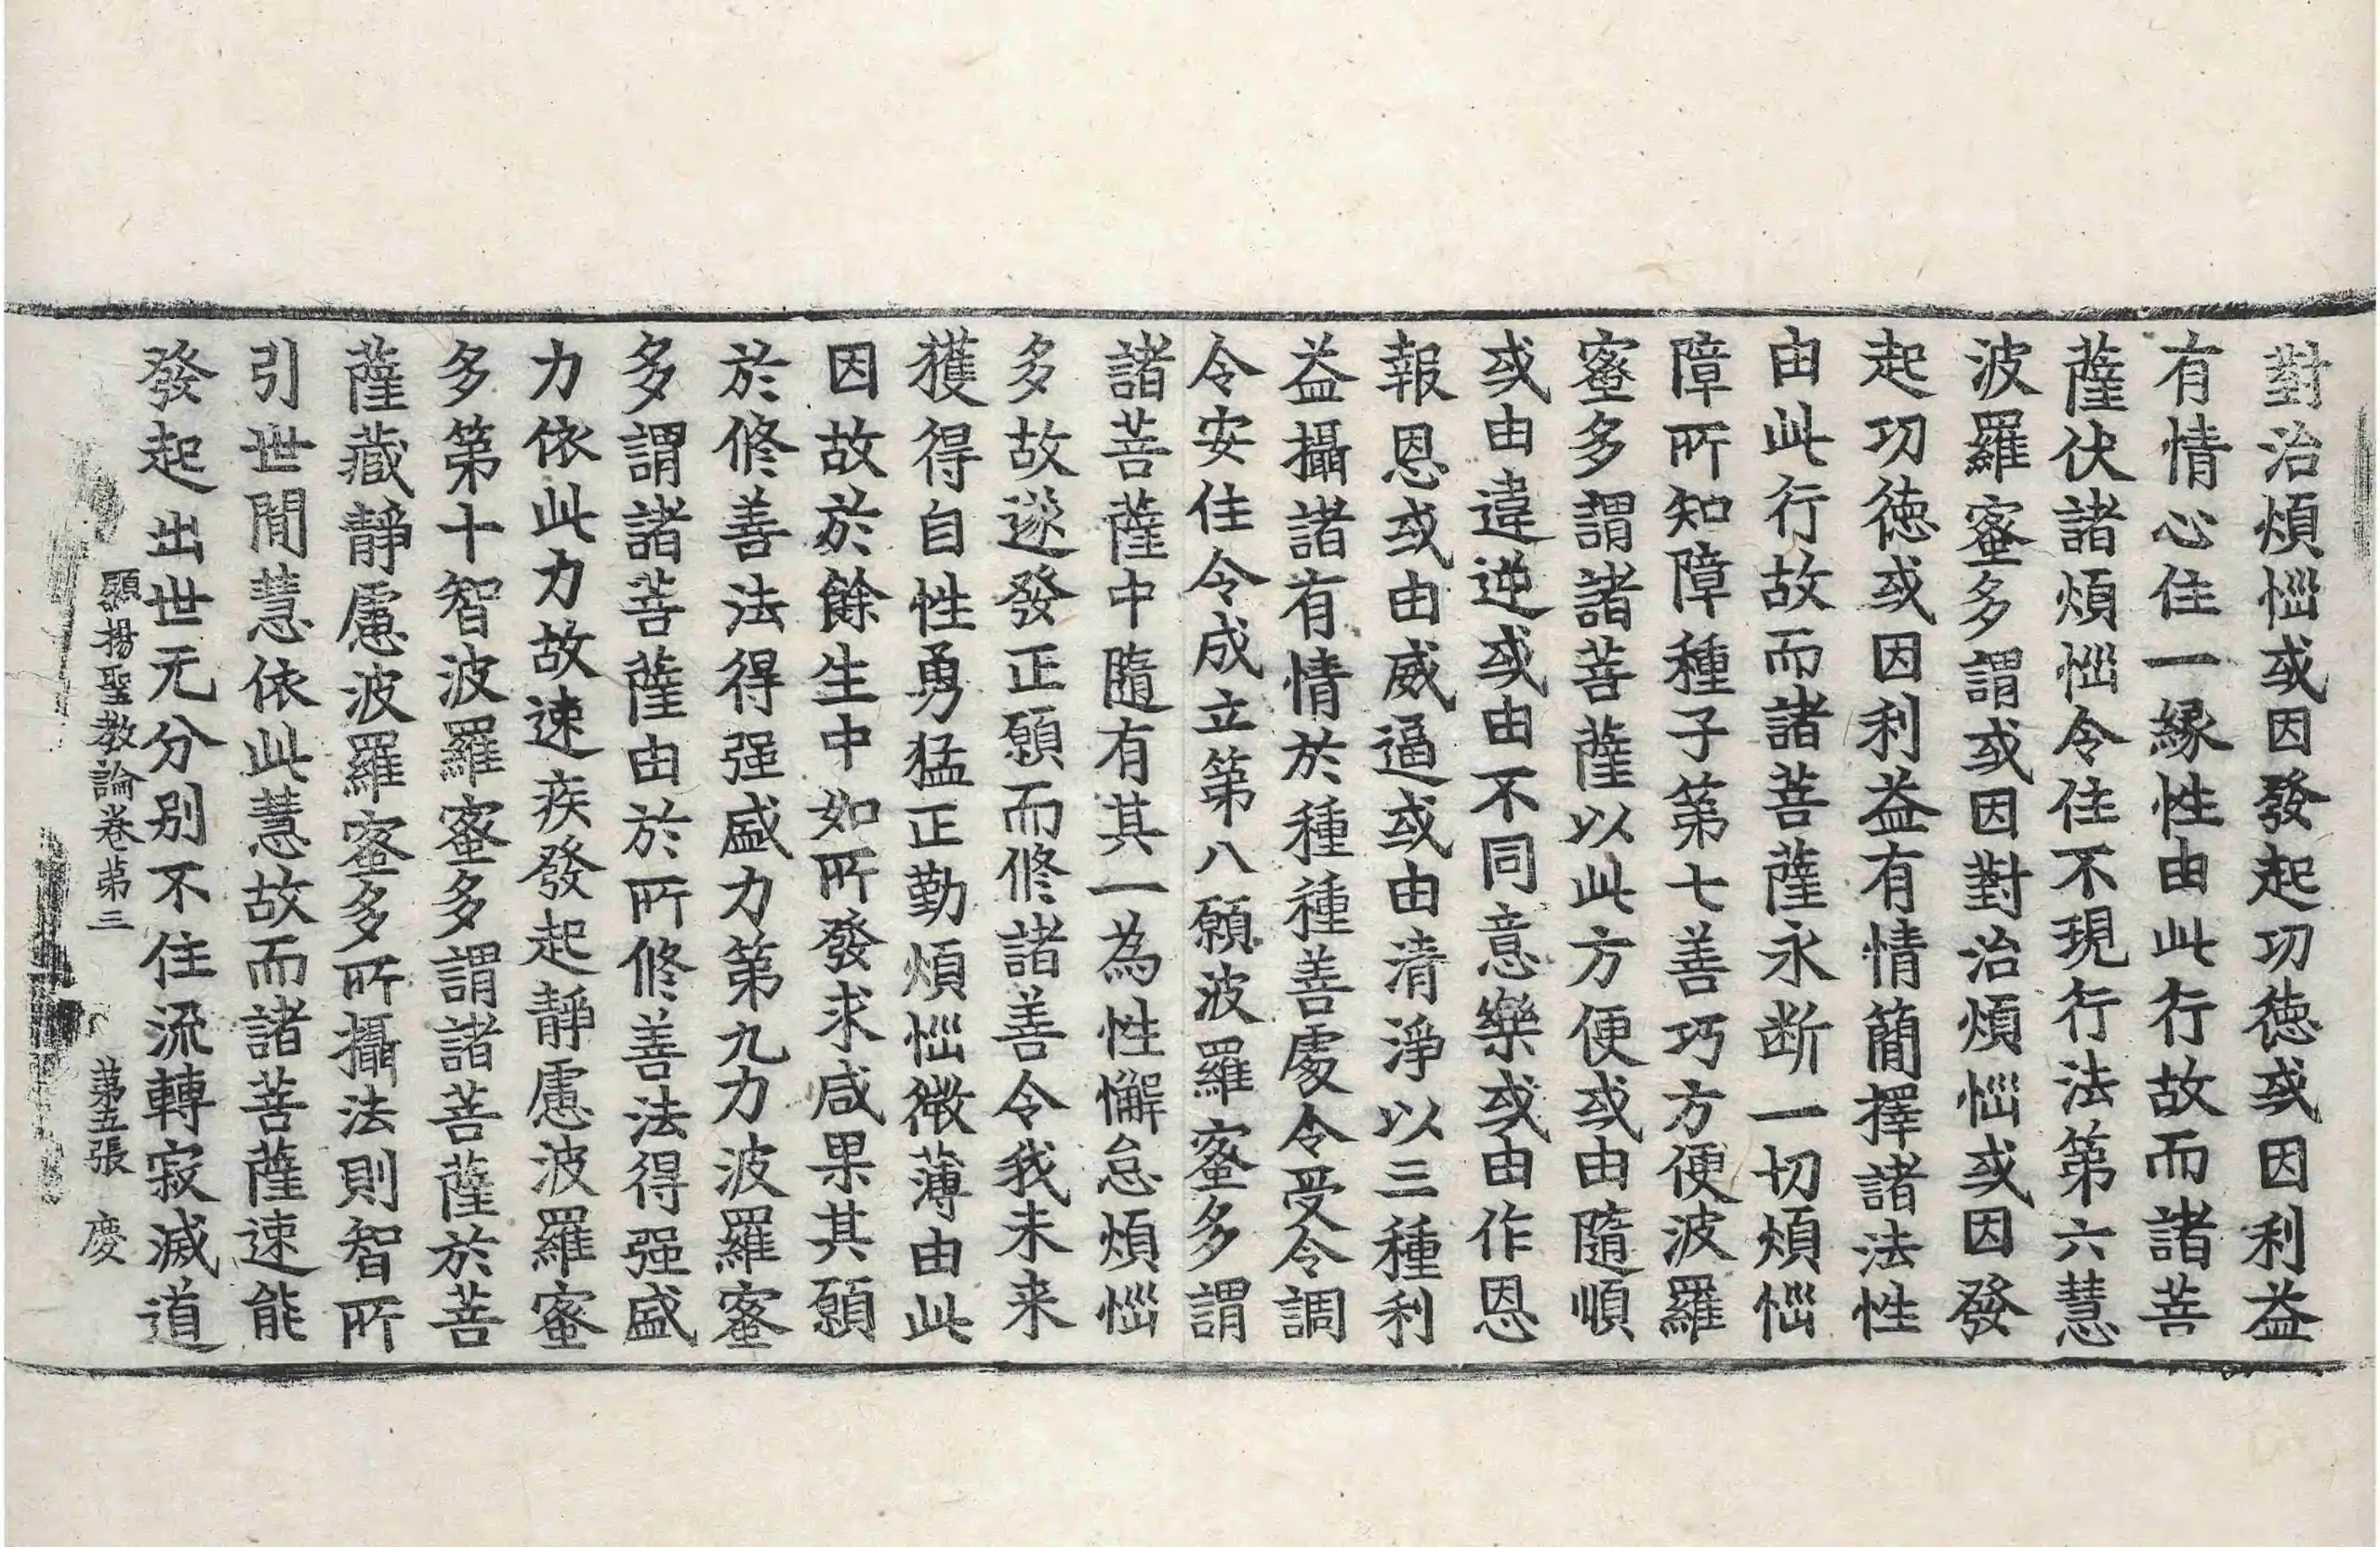 對治煩惱或因發起功德或因利益
有情心住一緣性由此行故而諸菩
薩伏諸煩惱令住不現行法第六慧
波羅蜜多謂或因對治煩惱或因發
起功德或因利益有情簡擇諸法性
由此行故而諸菩薩永断一切煩惱
障所知障種子第七善巧方便波羅
蜜多謂諸菩薩以此方便或由隨順
或由違逆或由不同意樂或由作恩
報恩或由威逼或由清淨以三種利
益攝諸有情於種種善處令受令調
令安住令成立第八願波羅蜜多謂
諸菩薩中隨有其一為性懈怠煩惱
多故遂發正願而修諸善令我未来
獲得自性勇猛正勤煩惱微薄由此
因故於餘生中如所發求咸果其願
於修善法得强盛力第九力波羅蜜
多謂諸菩薩由於所修善法得强盛
力依此力故速疾發起靜慮波羅蜜
多第十智波羅蜜多謂諸菩薩於菩
薩藏靜慮波羅蜜多所攝法則智所
引世間慧依此慧故而諸菩薩速能
發起出世无分別不住流轉寂滅道
顯揚聖教論卷苐三 苐五張 慶